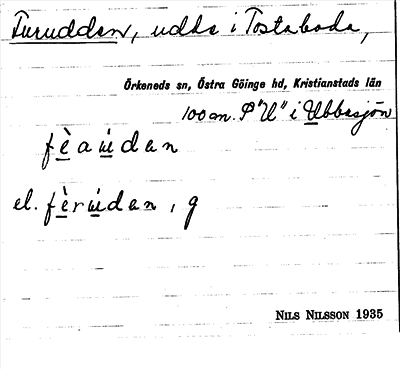 Furudden, udde i Tostaboda,
Örkeneds sn, Östra Göinge hd, Kristianstads län
100 m. S "U" i Ubbasjön
fèau̇dan
el. fèru̇dan, g
NILS NILSSON 1935